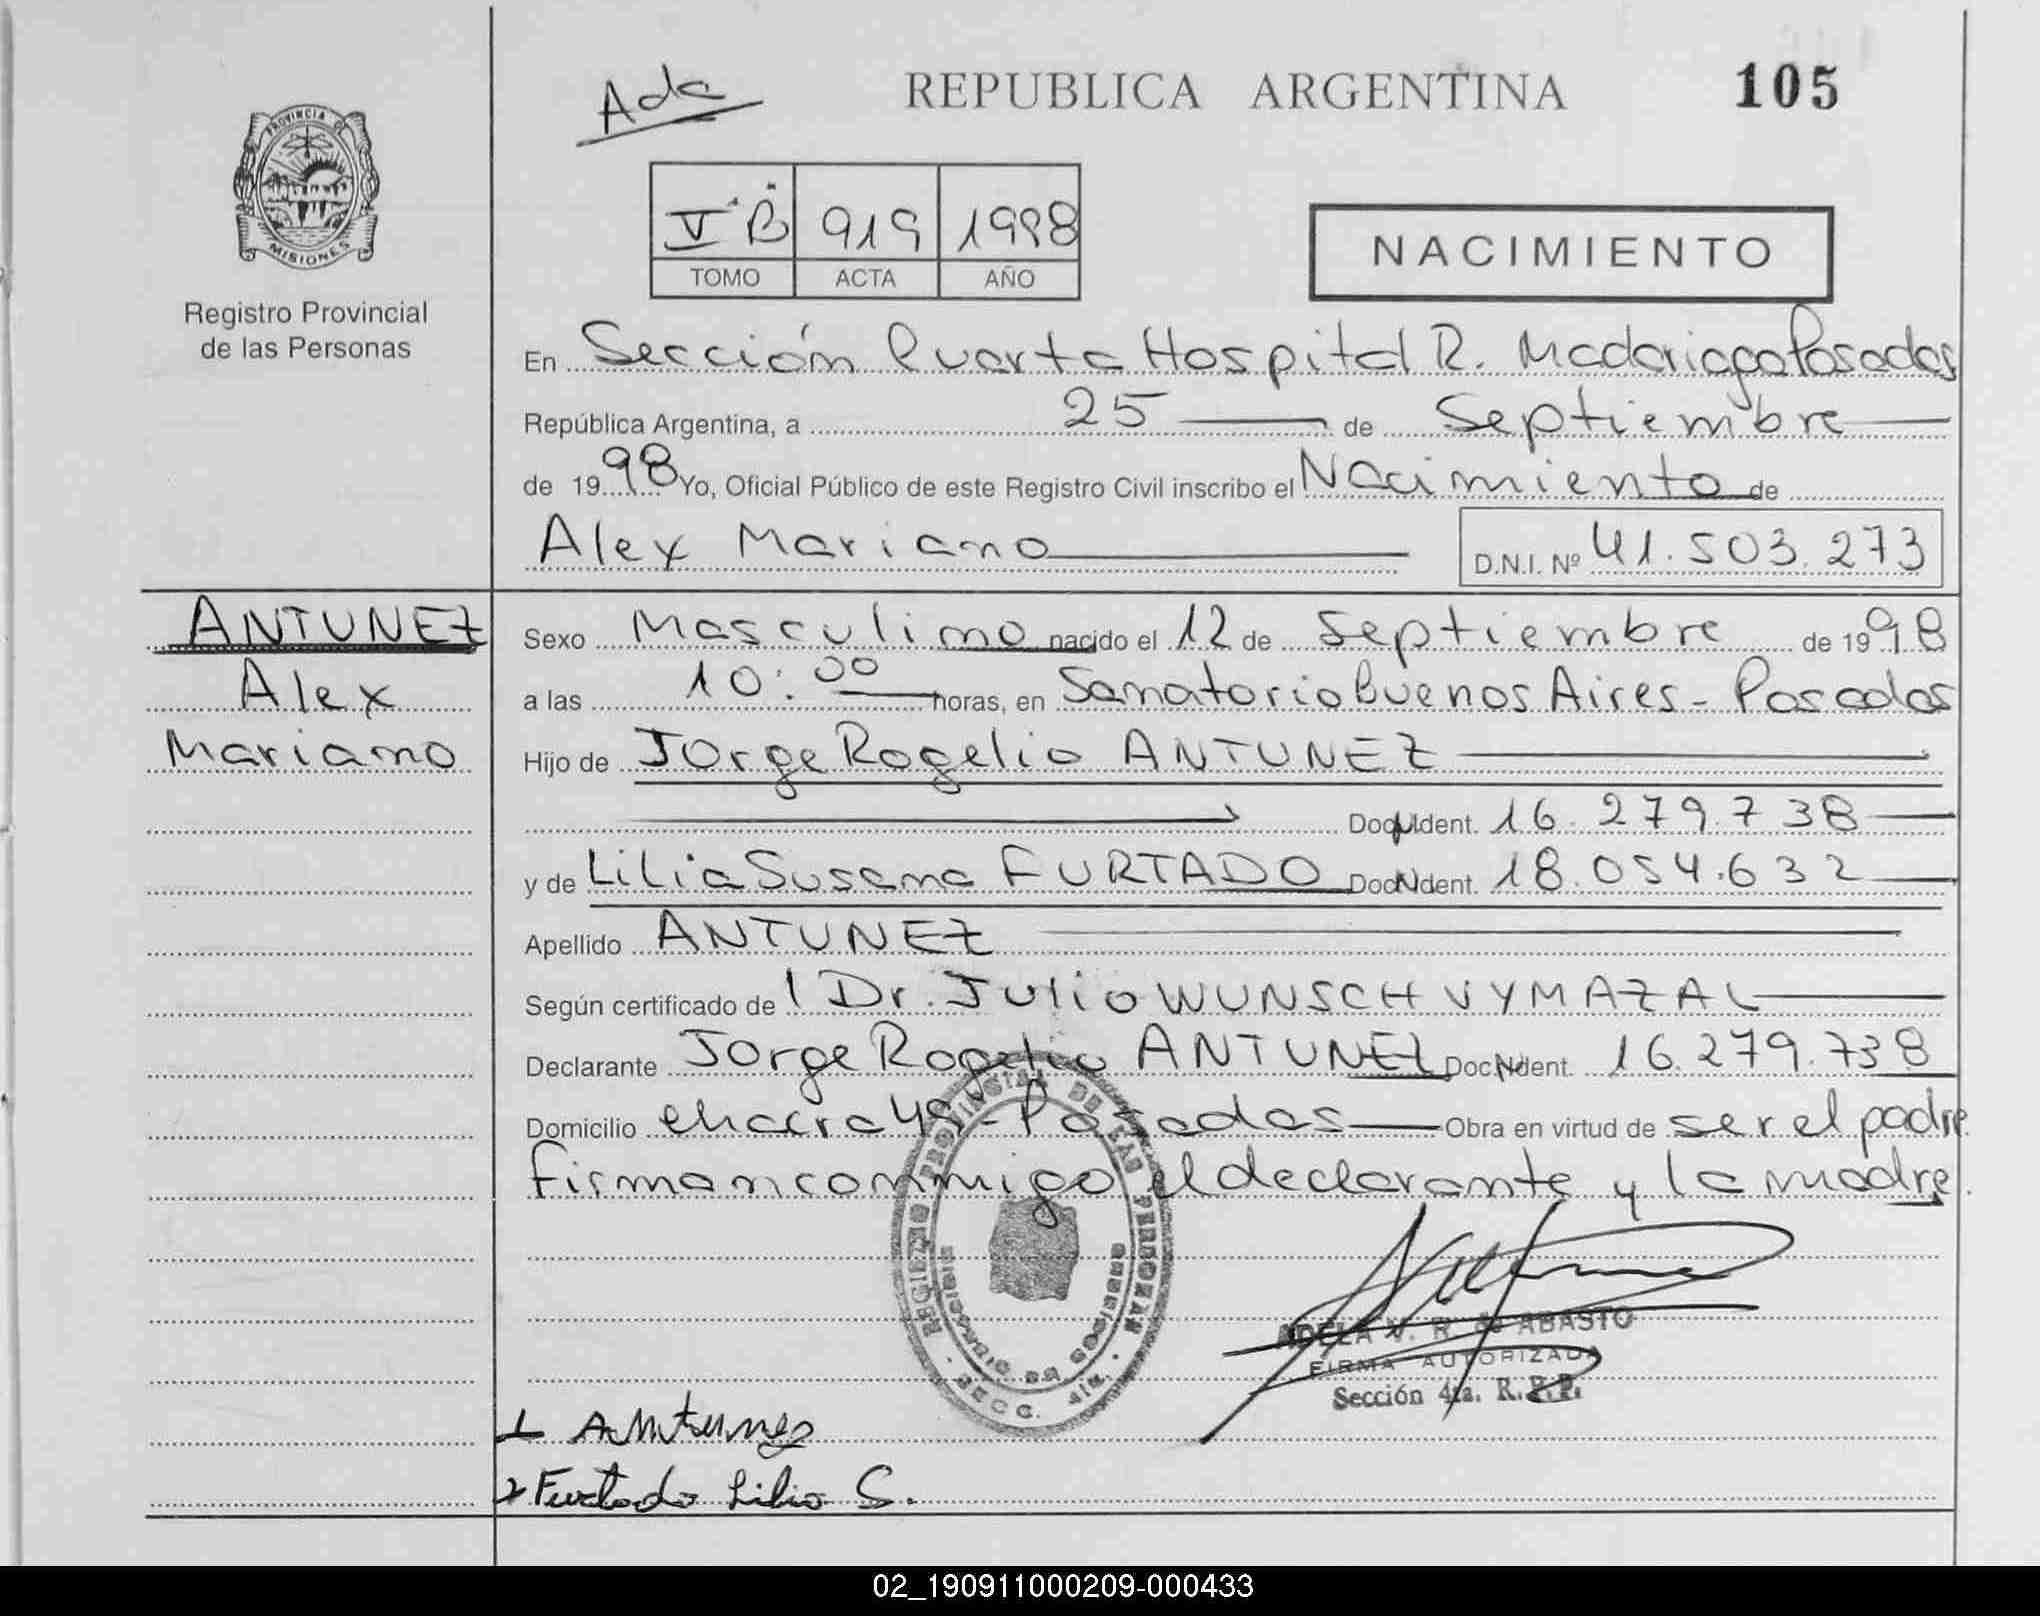 Ada
REPUBLICA ARGENTINA
105
PROVINCIA DE
MISIONES
Registro Provincial
de las Personas
V B 919 1998
TOMO ACTA AÑO
NACIMIENTO
En Sección Cuarta Hospital R. Madariaga Posadas
República Argentina, a 25 de Septiembre
de 1998 Yo, Oficial Público de este Registro Civil inscribo el Nacimiento de
Alex Mariano D.N.I. Nº 41.503.273
ANTUNEZ
Alex
Mariano
Sexo Masculino nacido el 12 de Septiembre de 1998
a las 10:00 horas, en Sanatorio Buenos Aires - Posadas
Hijo de Jorge Rogelio ANTUNEZ
Doc. Ident. 16.279.738
y de Lilia Susana FURTADO Doc. Ident. 18.054.632
Apellido ANTUNEZ
Según certificado de Dr. Julio WUNSCH VYMAZAL
Declarante Jorge Rogelio ANTUNEZ Doc. Ident. 16.279.738
Domicilio chacra Posadas Obra en virtud de ser el padre
firman conmigo el declarante y la madre.
REGISTRO PROVINCIAL DE LAS PERSONAS
SECC. 4ta.
ADELA V. R. de ABASTO
FIRMA AUTORIZADA
Sección 4ta. R.P.P.
1 Antunez
2 Furtado Lilia S.
02_190911000209-000433